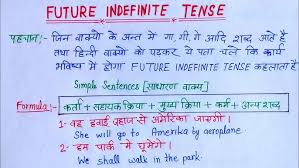 FUTURE INDEFINITE TENSE
पहचान:- जिन वाक्यो के अन्त में गा, गी, गे आदि शब्द आते है
तथा हिन्दी वाक्यो को पढ़कर ये पता चले कि कार्य
भविष्य में होगा FUTURE INDEFINITE TENSE कहलाता है
Simple Sentences [साधारण वाक्य]
Formula:- कर्ता + सहायक क्रिया + मुख्य क्रिया + कर्म + अन्य शब्द
1- वह हवाई जहाज से अमेरिका जाएगी।
She will go to Amerika by aeroplane.
2- हम पार्क में घूमेंगे।
We shall walk in the park.